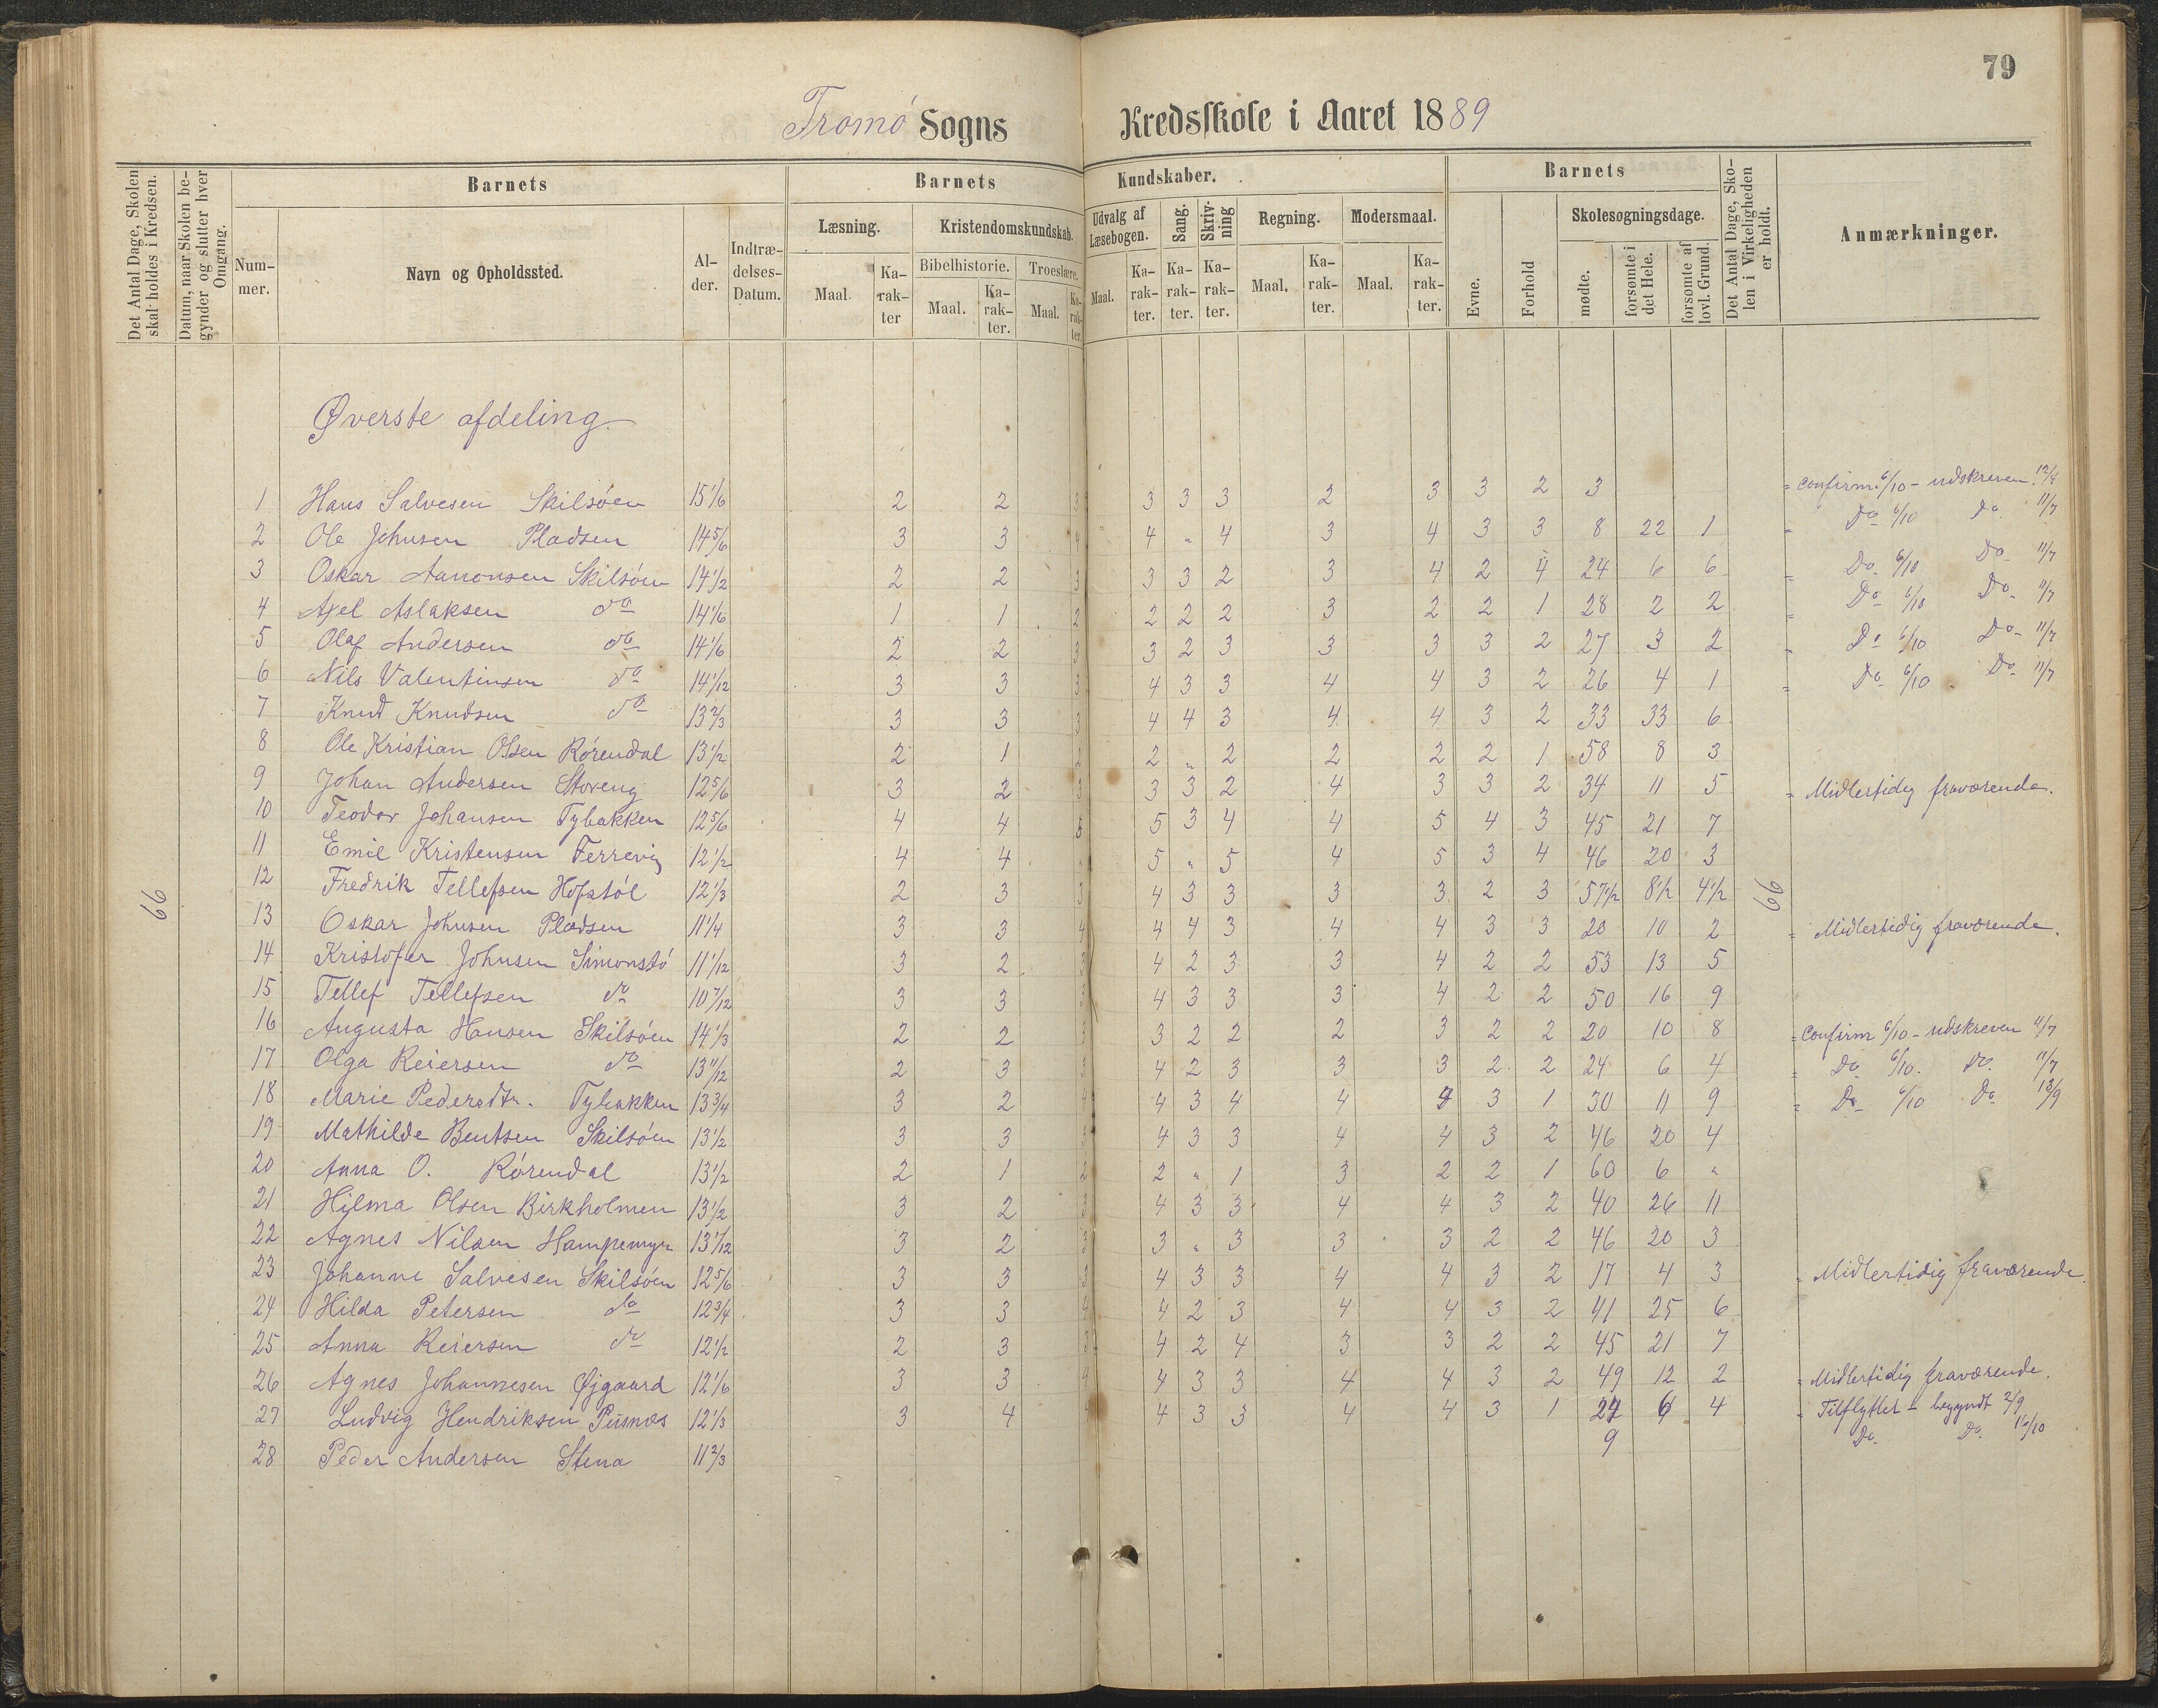 79
Tromø Sogns Kredsskole i Aaret 1889
Det Antal Dage, Skolen skal holdes i Kredsen.
Datum, naar Skolen begynder og slutter hver Omgang.
Barnets
Num-mer.
Navn og Opholdssted.
Al-der.
Indtræ-delses-Datum.
Barnets Kundskaber.
Læsning.
Maal.
Ka-rak-ter
Kristendomskundskab.
Bibelhistorie.
Maal.
Ka-rak-ter.
Troeslære.
Maal.
Ka-rak-ter.
Udvalg af Læsebogen.
Maal.
Ka-rak-ter.
Sang.
Ka-rak-ter.
Skriv-ning
Ka-rak-ter.
Regning.
Maal.
Ka-rak-ter.
Modersmaal.
Maal.
Ka-rak-ter.
Barnets
Evne.
Forhold
Skolesøgningsdage.
mødte.
forsømte i det Hele.
forsømte af lovl. Grund.
Det Antal Dage, Skolen i Virkeligheden er holdt.
Anmærkninger.
Øverste afdeling
66
66
1 Hans Salvesen Skilsøen 15 1/6 2 2 3 3 3 3 2 3 3 2 3 = confirm. 6/10 - udskreven 12/4
2 Ole Johnsen Pladsen 14 5/6 3 3 4 4 " 4 3 4 3 3 8 22 1 = Do 6/10 do 11/7
3 Oskar Aanonsen Skilsøen 14 1/2 2 2 3 3 3 2 3 4 2 4 24 6 6 = Do 6/10 Do 11/7
4 Axel Aslaksen do 14 1/6 1 1 2 2 2 2 3 2 2 1 28 2 2 = Do 6/10 Do 11/7
5 Olaf Andersen do 14 1/6 2 2 3 3 2 3 3 3 3 2 27 3 2 = Do 6/10 Do 11/7
6 Nils Valentinsen do 14 1/12 3 3 3 4 3 3 4 4 3 2 26 4 1 = Do 6/10 Do 11/7
7 Knud Knudsen do 13 2/3 3 3 3 4 4 3 4 4 3 2 33 33 6
8 Ole Kristian Olsen Rørendal 13 1/2 2 1 2 2 " 2 2 2 2 1 58 8 3
9 Johan Andersen Storeng 12 5/6 3 2 3 3 3 2 4 3 3 2 34 11 5 = Midlertidig fraværende.
10 Teodor Johansen Tybakken 12 5/6 4 4 5 5 3 4 4 5 4 3 45 21 7
11 Emil Kristensen Ferrevig 12 1/2 4 4 5 " 5 4 5 3 4 46 20 3
12 Fredrik Tellefsen Hofstøl 12 1/3 2 3 3 4 3 3 3 3 2 3 57 1/2 8 1/2 4 1/2
13 Oskar Johnsen Pladsen 11 1/4 3 3 4 4 4 3 4 4 3 3 20 10 2 = Midlertidig fraværende.
14 Kristofer Johnsen Simonstø 11 1/12 3 2 3 4 2 3 3 4 2 2 53 13 5
15 Tellef Tellefsen do 10 7/12 3 3 3 4 3 3 3 4 2 2 50 16 9
16 Augusta Hansen Skilsøen 14 1/3 2 2 3 3 2 2 2 3 2 2 20 10 8 = confirm 6/10 - udskreven 11/7
17 Olga Reiersen do 13 11/12 2 3 3 4 2 3 3 3 2 2 24 6 4 = Do 6/10. Do. 11/7
18 Marie Pedersdtr. Tybakken 13 3/4 3 2 4 4 3 4 4 4 3 1 30 11 9 = Do 6/10 Do 13/9
19 Mathilde Bentsen Skilsøen 13 1/2 3 3 3 4 3 3 4 4 3 2 46 20 4
20 Anna O. Rørendal 13 1/2 2 1 2 2 " 1 3 2 2 1 60 6 "
21 Hilma Olsen Birkholmen 13 1/2 3 2 3 4 3 3 4 4 3 2 40 26 11
22 Agnes Nilsen Hampemyr 13 1/12 3 2 3 3 " 3 3 3 2 2 46 20 3
23 Johanne Salvesen Skilsøen 12 5/6 3 3 3 4 3 3 4 4 3 2 17 4 3 = Midlertidig fraværende.
24 Hilda Petersen do 12 3/4 3 3 4 4 2 3 4 4 3 2 41 25 6
25 Anna Reiersen do 12 1/2 2 3 3 4 2 4 3 3 2 2 45 21 7
26 Agnes Johannesen Øjgaard 12 1/6 3 3 4 4 3 3 4 4 3 2 49 12 2 = Midlertidig fraværende.
27 Ludvig Hendriksen Pusnæs 12 1/3 3 4 4 4 3 3 4 4 3 1 27 6 4 = Tilflyttet - begyndt 2/9
28 Peder Andersen Stena 11 2/3 9 Do. Do. 16/10